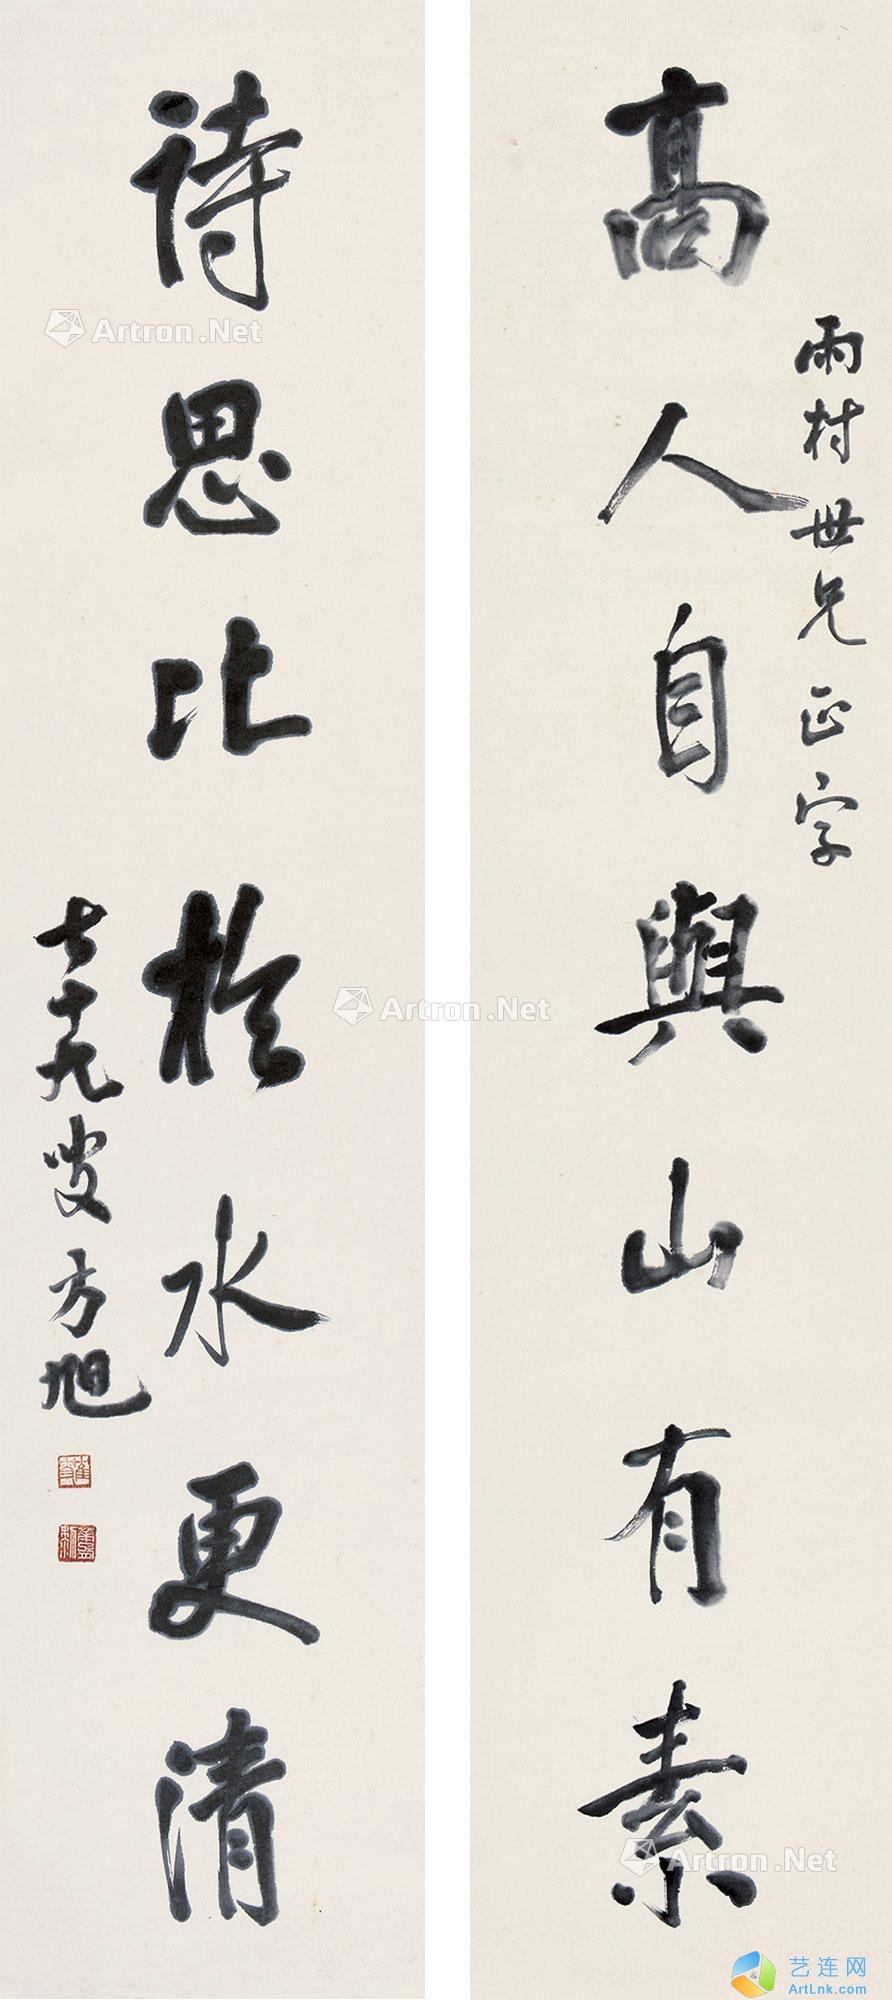 高人自與山有素
雨村世兄正字
詩思比於水更清
七十九叟方旭
Artron.Net
Artron.Net
Artron.Net
艺连网
ArtLnk.com